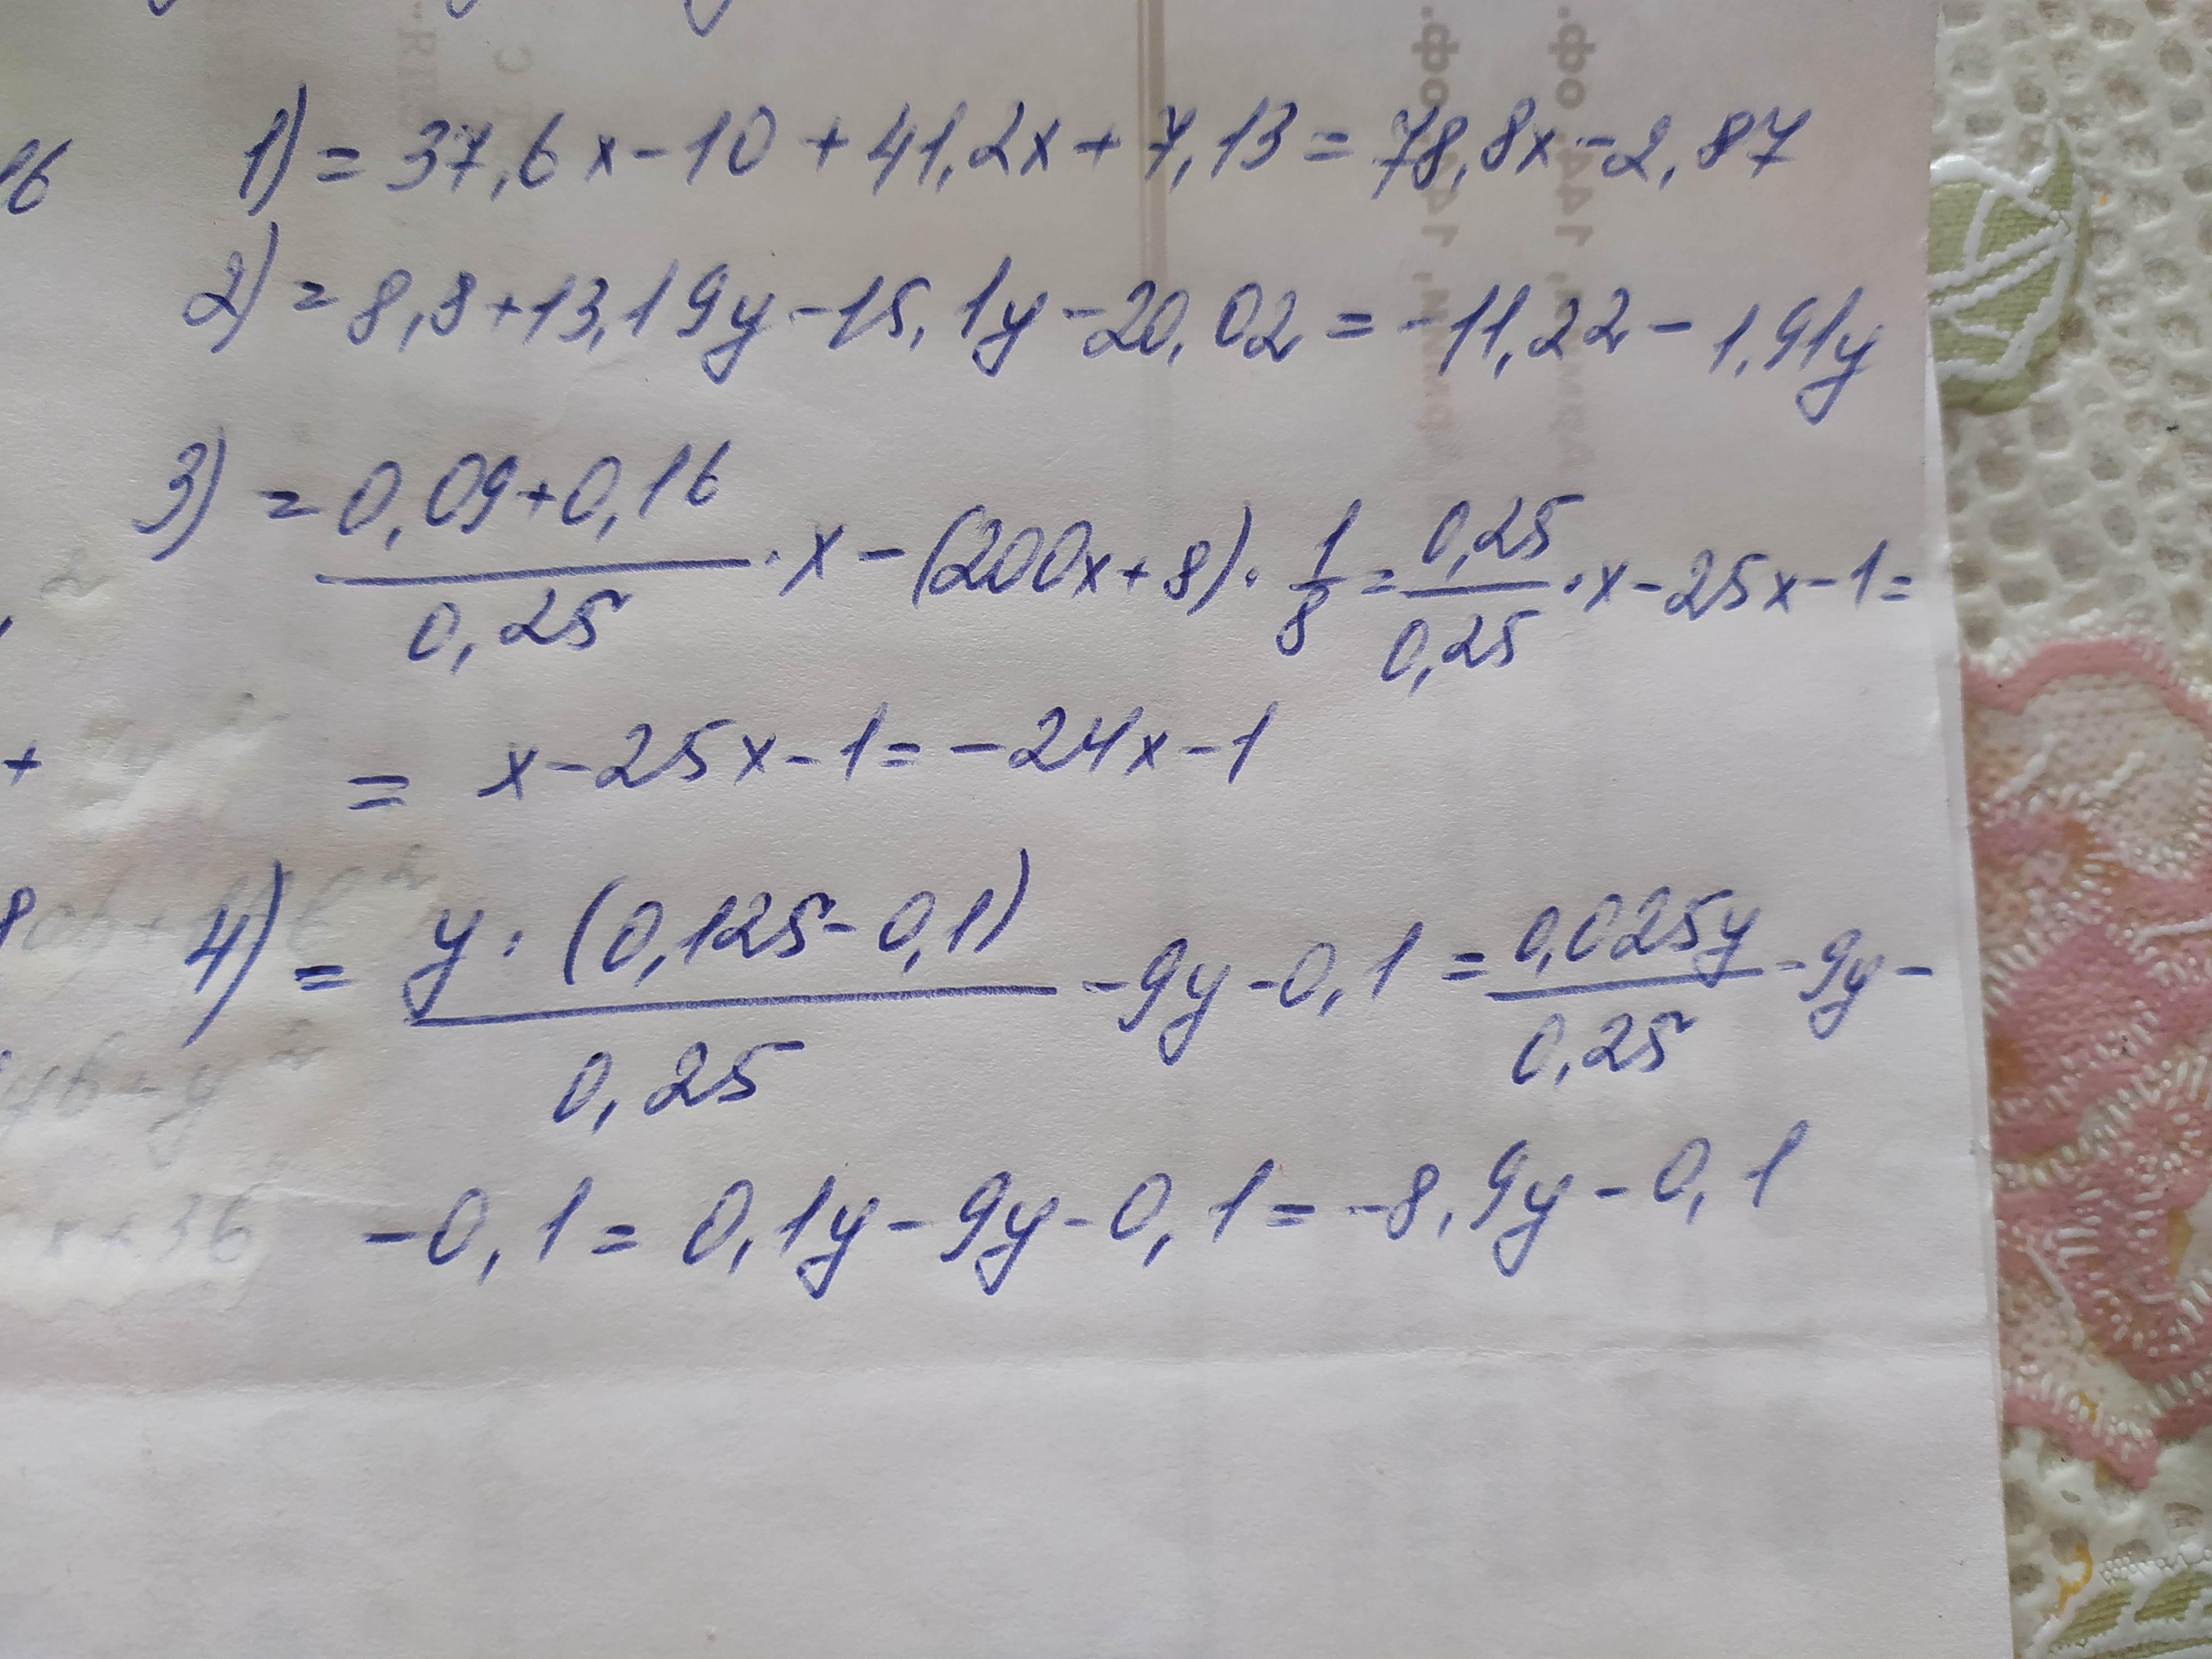 1) = 37,6x - 10 + 41,2x + 7,13 = 78,8x - 2,87
2) = 8,8 + 13,19y - 15,1y - 20,02 = -11,22 - 1,91y
3) = (0,09 + 0,16)/0,25 · x - (200x + 8) · 1/8 = 0,25/0,25 · x - 25x - 1 =
= x - 25x - 1 = -24x - 1
4) = y · (0,125 - 0,1)/0,25 - 9y - 0,1 = 0,025y/0,25 - 9y -
- 0,1 = 0,1y - 9y - 0,1 = -8,9y - 0,1